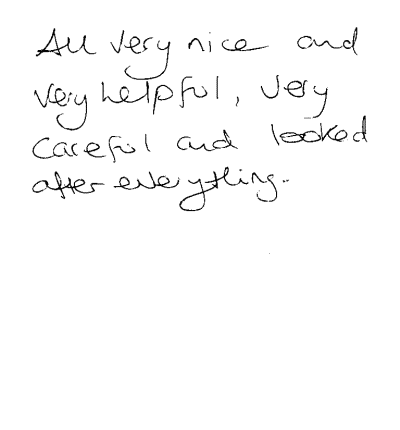 All very nice and
very helpful, very
careful and looked
after everything.